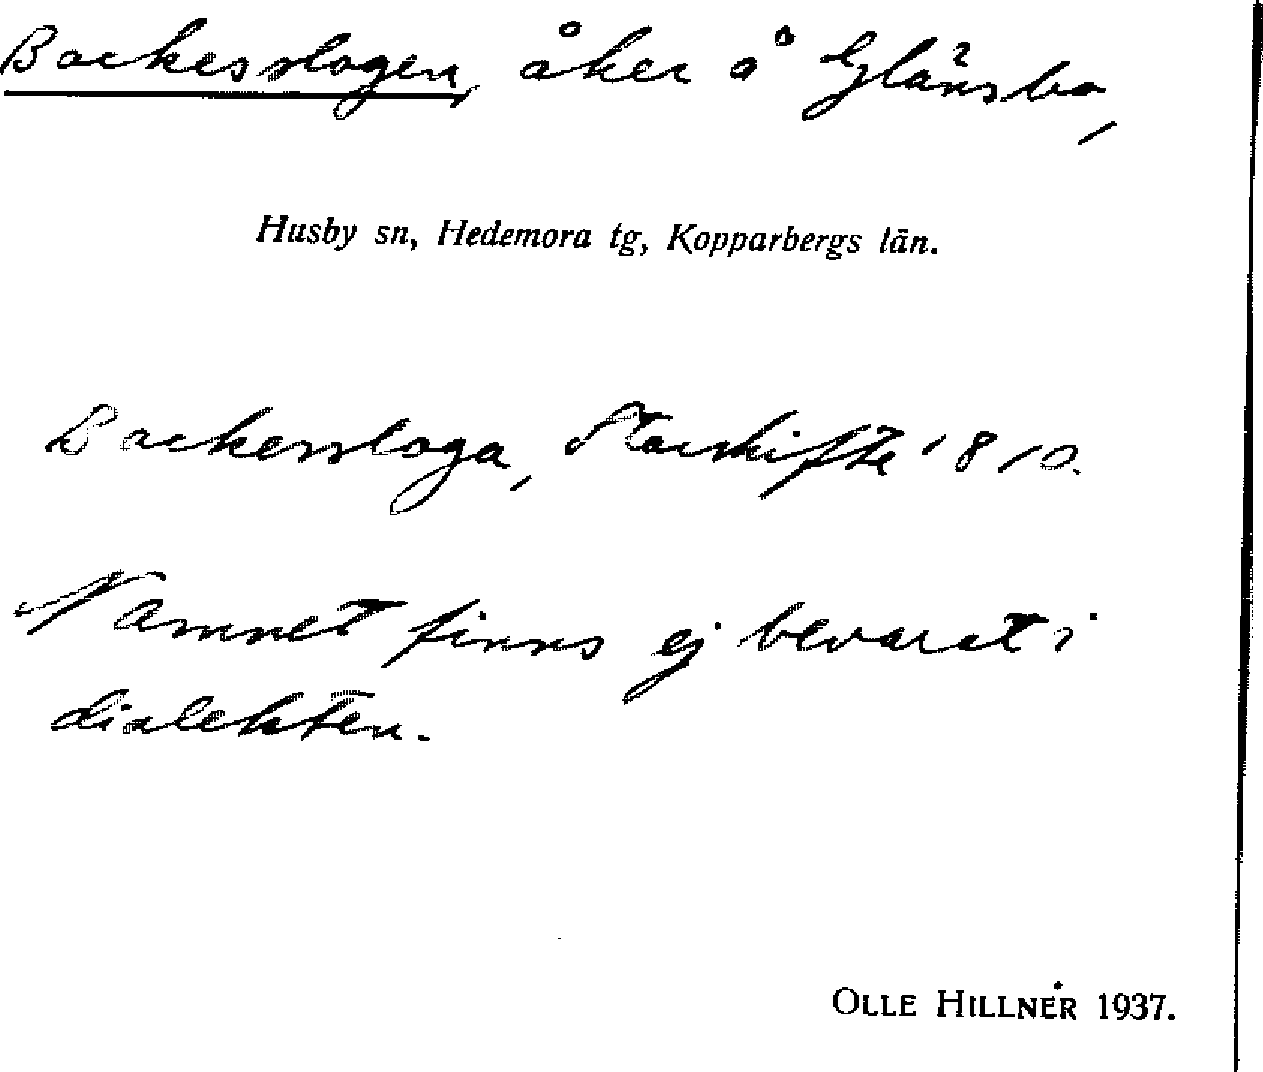 Backesslogen, åker å Glänsbo,
Husby sn, Hedemora tg, Kopparbergs län.
Backerssloga, Storskifte 1810.
Namnet finns ej bevarat i
dialekten.
OLLE HILLNER 1937.